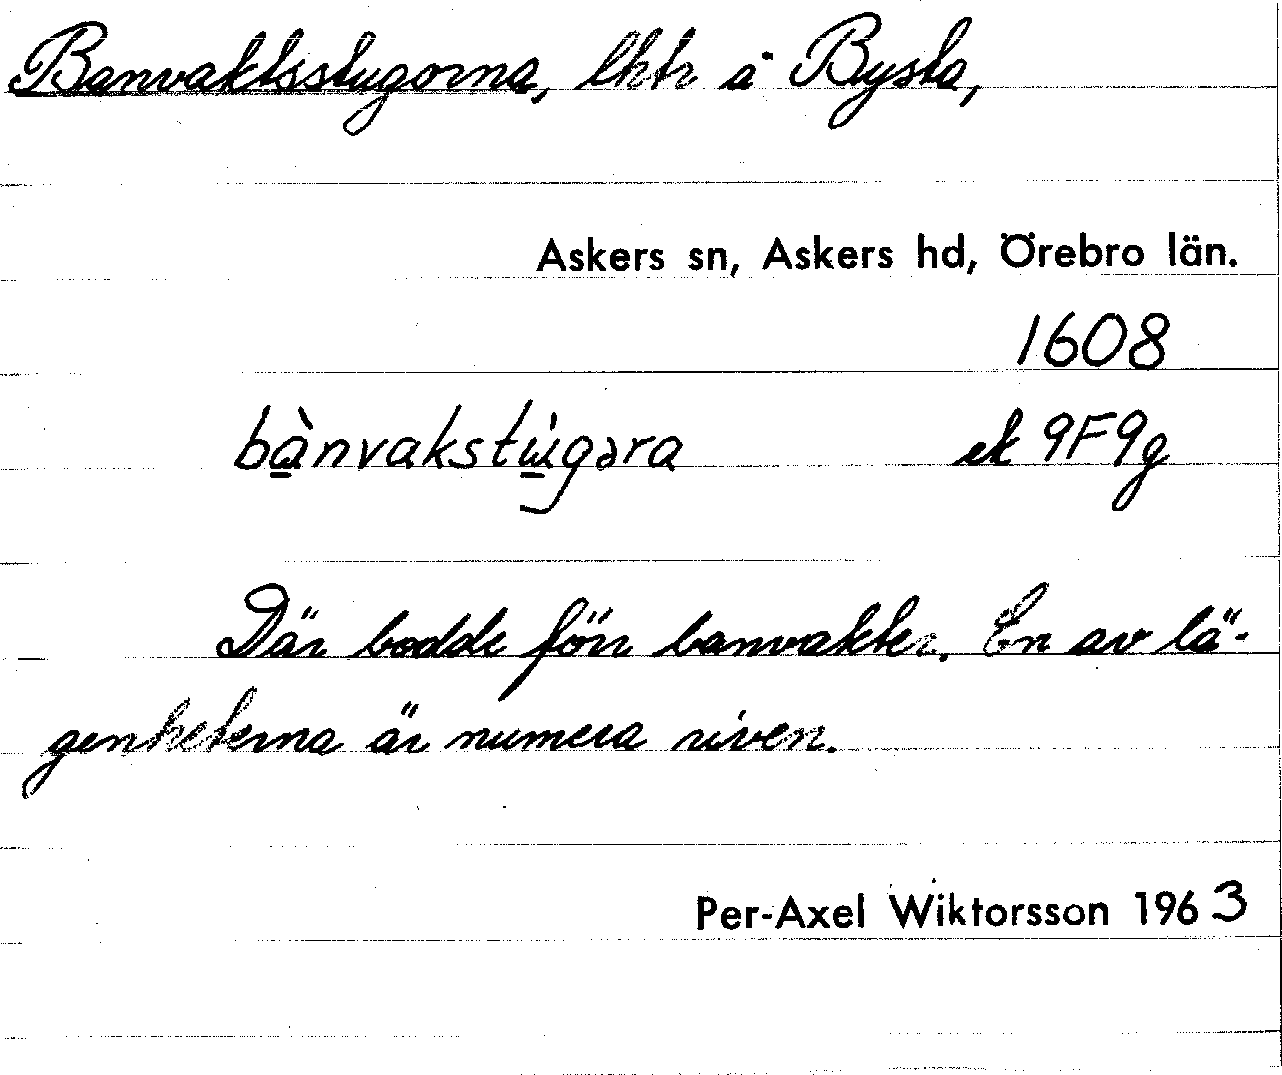 Banvaktsstugorna, lhtr å Bysta,
Askers sn, Askers hd, Örebro län.
1608
bànvakstùgəra ek 9F9g
Där bodde förr banvakter. En av lä-
genheterna är numera riven.
Per-Axel Wiktorsson 1963